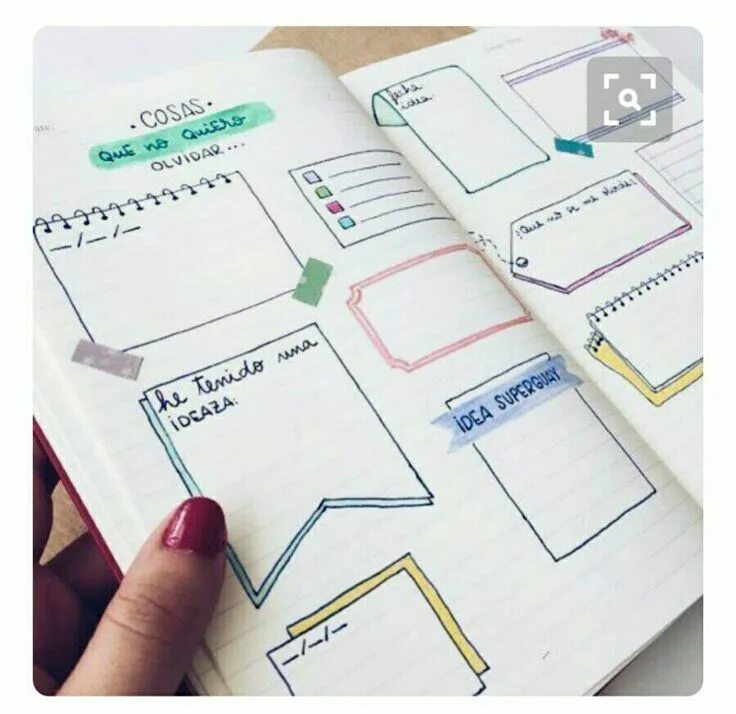 • COSAS •
QUE NO QUIERO
OLVIDAR...
_/_/_
he tenido una
iDEAZA:
iDEA SUPERGUAY
_/_/_
fecha
idea:
¡Que no se me olvide!